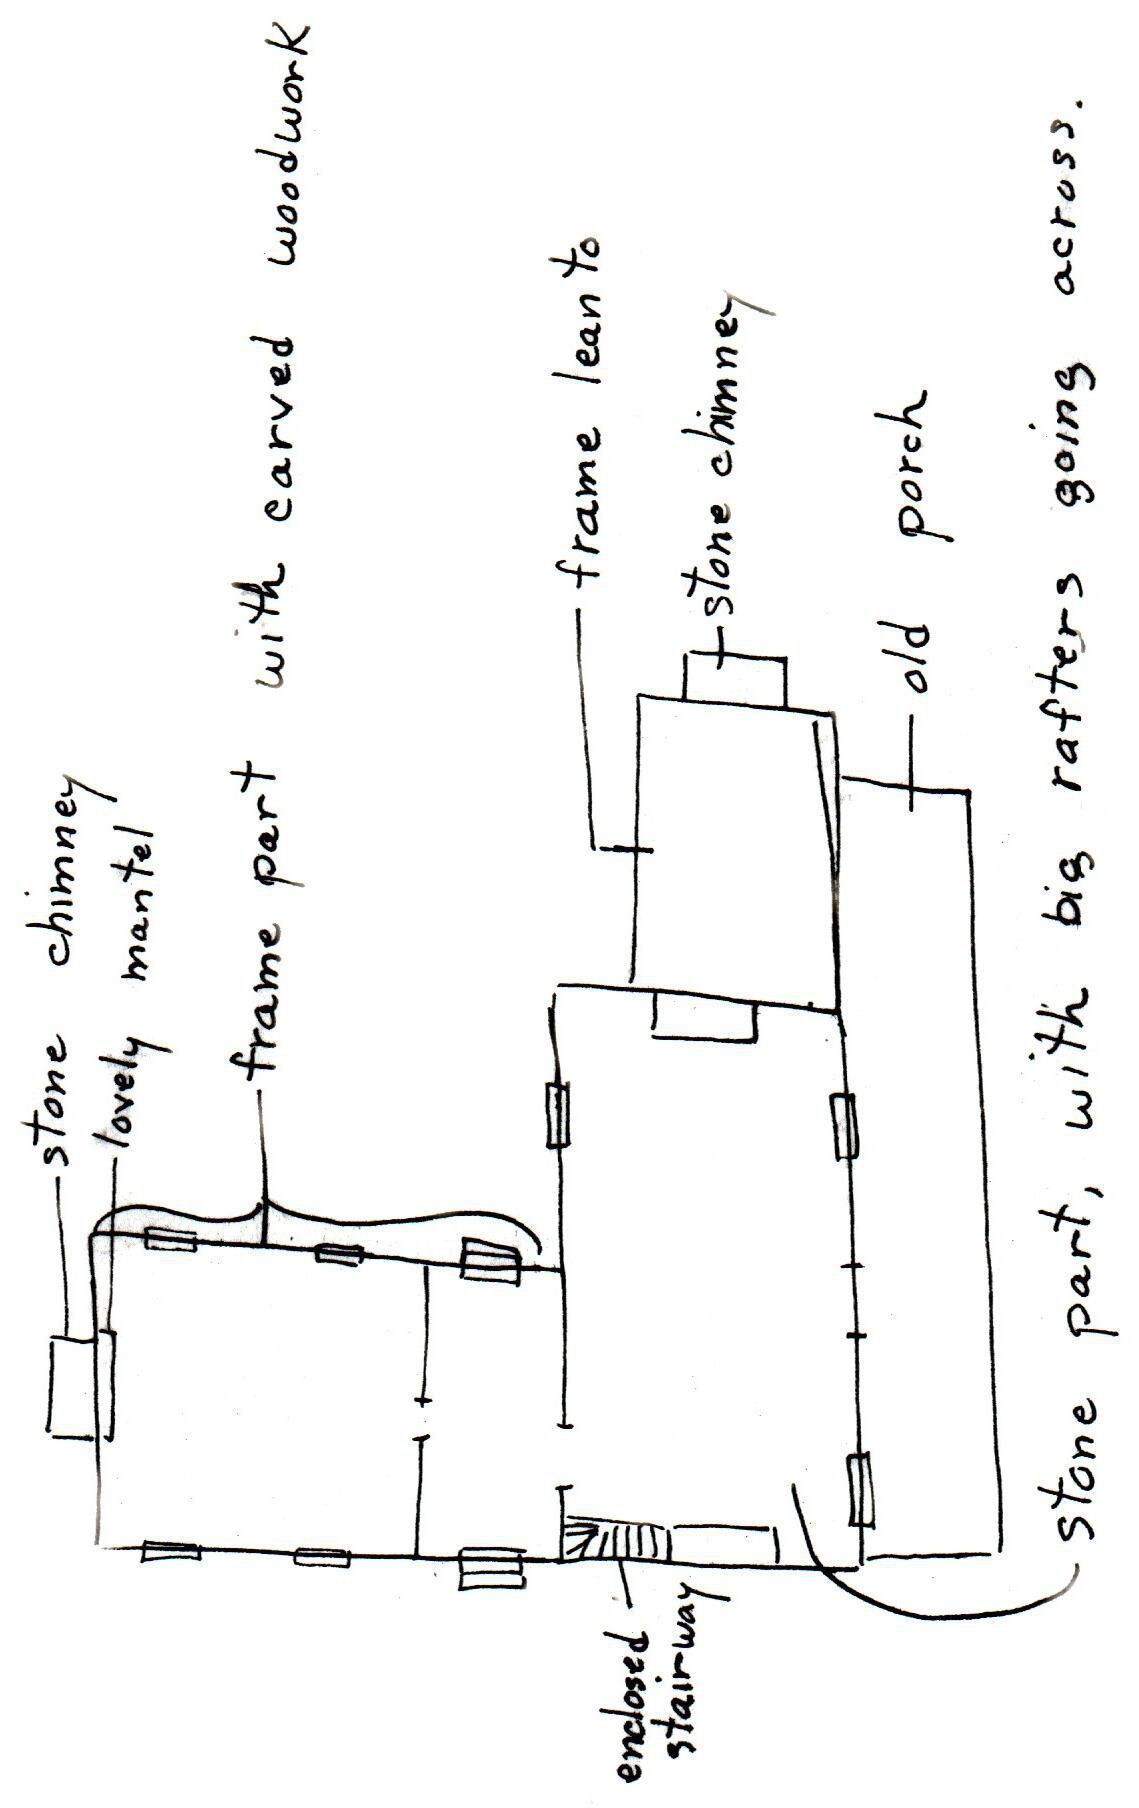 stone chimney
lovely mantel
frame part with carved woodwork
frame lean to
stone chimney
old porch
enclosed
stairway
stone part, with big rafters going across.